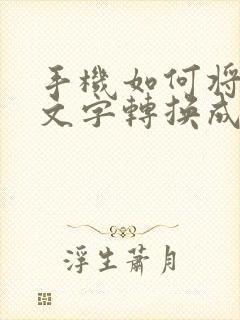 手機如何將
文字轉換成
浮生蕭月